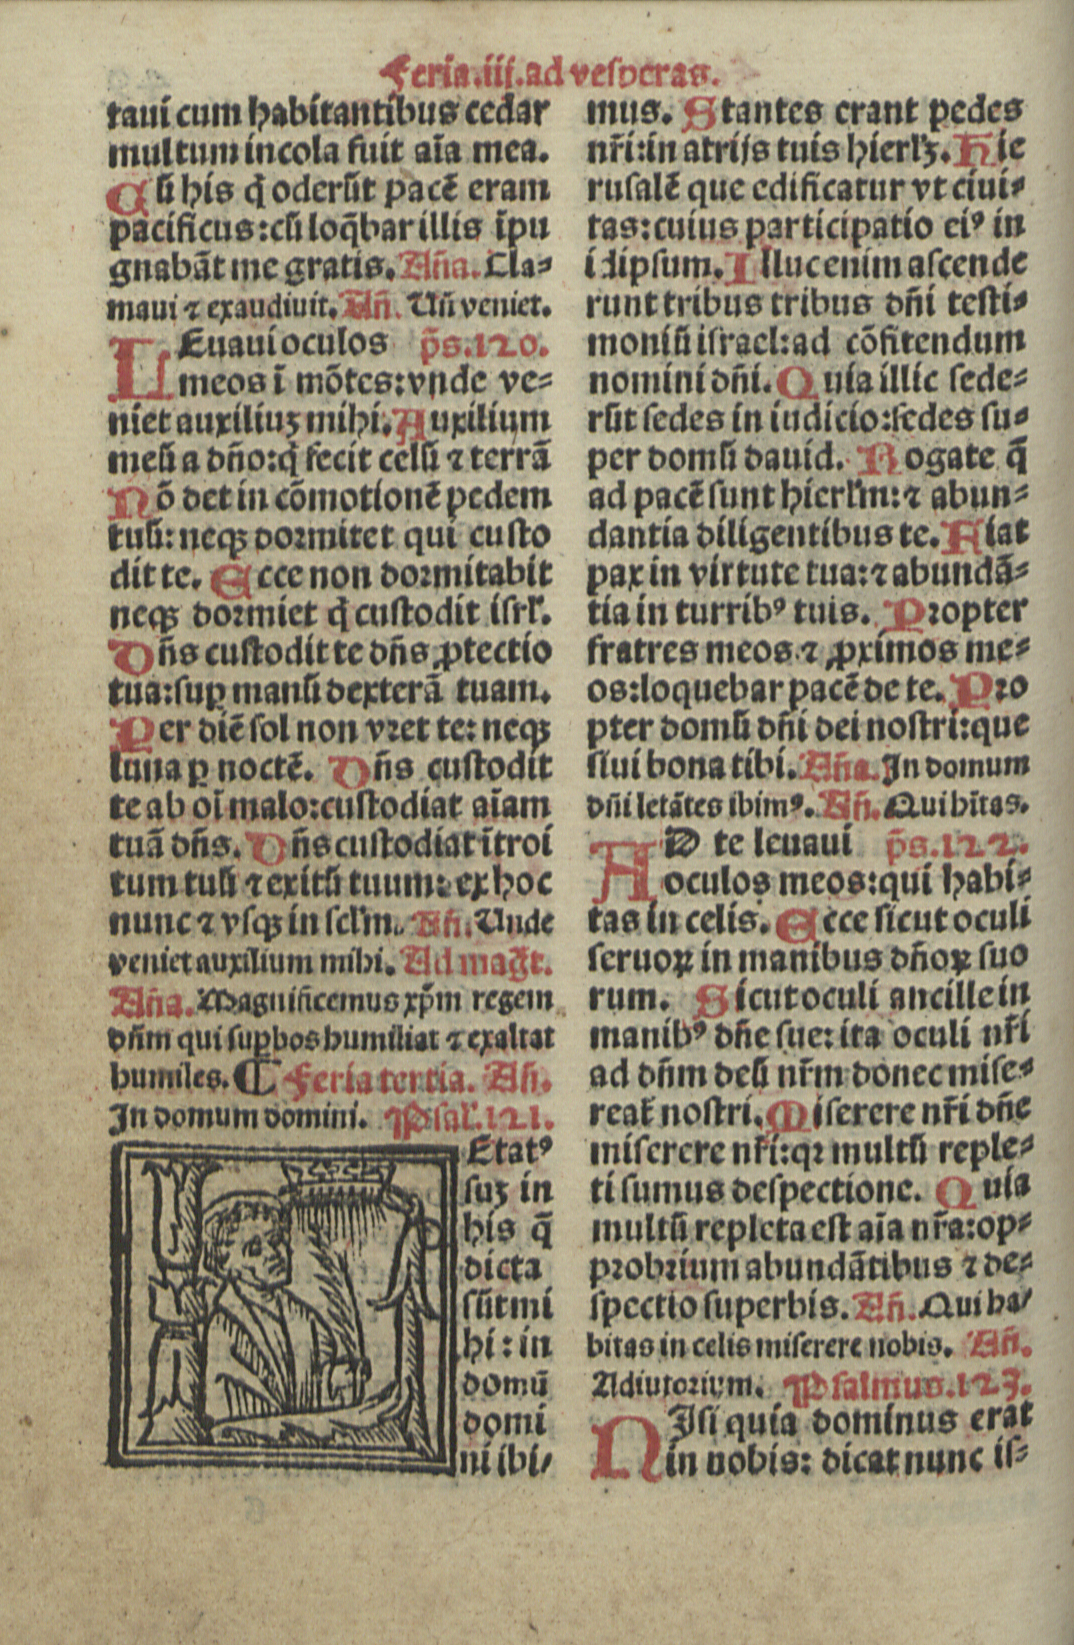 Feria.iij.ad vesperas.
taui cum habitantibus cedar
multum incola fuit aĩa mea.
Cũ his q̃ oderũt pacẽ eram
pacificus:cũ loq̃bar illis ĩpu
gnabãt me gratis. Aña. Cla⸗
maui ⁊ exaudiuit. Añ. Uñ veniet.
LEuaui oculos p̃s.120.
meos ĩ mõtes:vnde ve⸗
niet auxiliuʒ mihi. Auxilium
meũ a dño:q̃ fecit celũ ⁊ terrã
Nõ det in cõmotionẽ pedem
tuũ: neqꝫ dormitet qui custo
dit te. Ecce non dormitabit
neqꝫ dormiet q̃ custodit isrł.
Dñs custodit te dñs ꝓtectio
tua:suꝑ manũ dexterã tuam.
Per diẽ sol non vret te: neqꝫ
luna ꝑ noctẽ. Dñs custodit
te ab oĩ malo:custodiat aĩam
tuã dñs. Dñs custodiat ĩtroi
tum tuũ ⁊ exitũ tuum: ex hoc
nunc ⁊ vsqꝫ in sclm̃. Añ. Unde
veniet auxilium mihi. Ad mag̃t.
Aña. Magnificemus xp̃m regem
dñm qui suꝑbos humiliat ⁊ exaltat
humiles. ¶ Feria tertia. Añ.
In domum domini. Psał.121.
Etatꝰ
suʒ in
his q̃
dicta
sũt mi
hi: in
domũ
domi
ni ibi/
mus. Stantes erant pedes
nr̃i:in atrijs tuis hierłʒ. Hie
rusalẽ que edificatur vt ciui⸗
tas:cuius participatio eiꝰ in
idipsum. Illuc enim ascende
runt tribus tribus dñi testi⸗
moniũ israel:ad cõfitendum
nomini dñi. Quia illic sede⸗
rũt sedes in iudicio:sedes su⸗
per domũ dauid. Rogate q̃
ad pacẽ sunt hierłm:⁊ abun⸗
dantia diligentibus te. Fiat
pax in virtute tua:⁊ abundã⸗
tia in turribꝰ tuis. Propter
fratres meos ⁊ ꝓximos me⸗
os:loquebar pacẽ de te. Pro
pter domũ dñi dei nostri:que
siui bona tibi. Aña. In domum
dñi letãtes ibimꝰ. Añ. Qui hĩtas.
AD te leuaui p̃s.122.
oculos meos:qui habi⸗
tas in celis. Ecce sicut oculi
seruoꝝ in manibus dñoꝝ suo
rum. Sicut oculi ancille in
manibꝰ dñe sue: ita oculi nr̃i
ad dñm deũ nr̃m donec mise⸗
reat̃ nostri. Miserere nr̃i dñe
miserere nr̃i:qꝛ multũ reple⸗
ti sumus despectione. Quia
multũ repleta est aĩa nr̃a:op⸗
probrium abundãtibus ⁊ de⸗
spectio superbis. Añ. Qui ha/
bitas in celis miserere nobis. Añ.
Adiutorium. Psalmus.123.
NIsi quia dominus erat
in nobis: dicat nunc is⸗